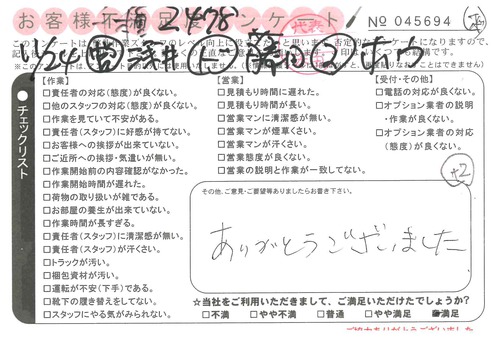 お客様不満足アンケート
№ 045694
2478
4/24
チェックリスト
【作業】
□責任者の対応(態度)が良くない。
□他のスタッフの対応(態度)が良くない。
□作業を見ていて不安がある。
□責任者(スタッフ)に好感が持てない。
□お客様への挨拶が出来ていない。
□ご近所への挨拶・気遣いが無い。
□作業開始前の内容確認がなかった。
□作業開始時間が遅れた。
□荷物の取り扱いが雑である。
□お部屋の養生が出来ていない。
□作業時間が長すぎる。
□責任者(スタッフ)に清潔感が無い。
□責任者(スタッフ)が汗くさい。
□トラックが汚い。
□梱包資材が汚い。
□運転が不安(下手)である。
□靴下の履き替えをしてない。
□スタッフにやる気がみられない。
【営業】
□見積もり時間に遅れた。
□見積もり時間が長い。
□営業マンに清潔感が無い。
□営業マンが煙草くさい。
□営業マンが汗くさい。
□営業態度が良くない。
□営業の説明と作業が一致してない。
【受付・その他】
□電話の対応が良くない。
□オプション業者の説明
・作業が良くない。
□オプション業者の対応
(態度)が良くない。
+2
その他、ご意見・ご要望等ありましたらお書き下さい。
ありがとうございました
☆当社をご利用いただきまして、ご満足いただけたでしょうか?
□不満 □やや不満 □普通 □やや満足 ■満足
ご協力ありがとうございました